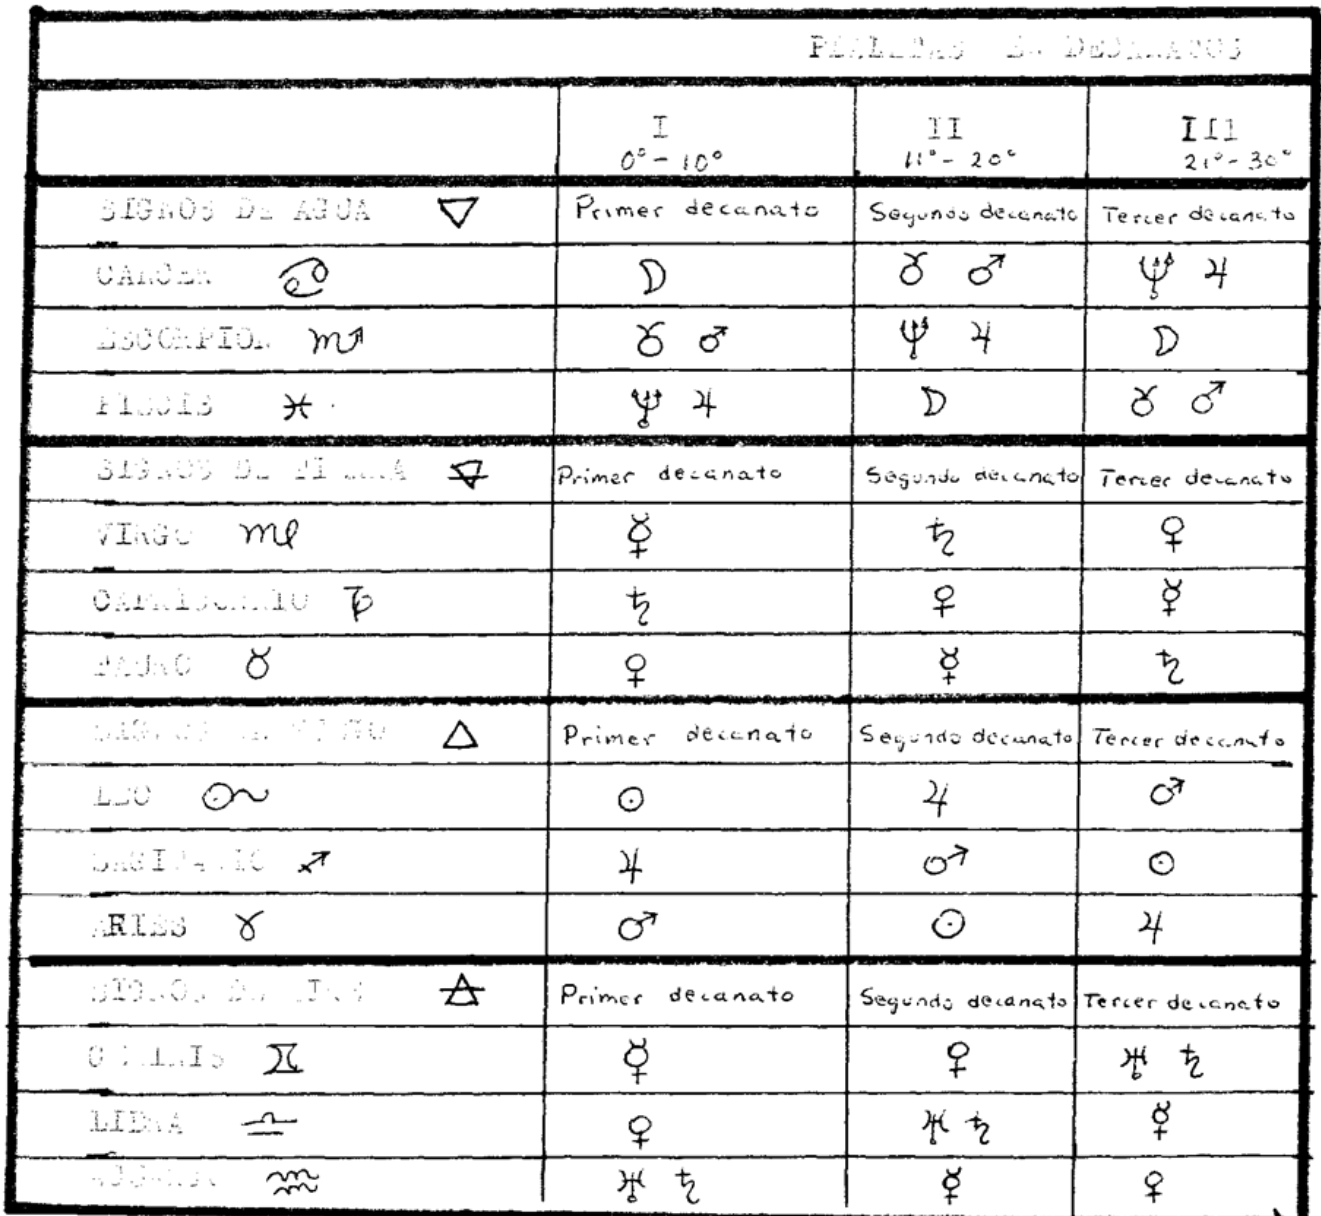 PLANETAS EN DECANATOS
I II III
0° - 10° 11° - 20° 21° - 30°
SIGNOS DE AGUA ▽ Primer decanato Segundo decanato Tercer decanato
CANCER ♋ ☽ ♉ ♂ ♆ ♃
ESCORPION ♏ ♉ ♂ ♆ ♃ ☽
PISCIS ♓ ♆ ♃ ☽ ♉ ♂
SIGNOS DE TIERRA 🜃 Primer decanato Segundo decanato Tercer decanato
VIRGO ♍ ☿ ♄ ♀
CAPRICORNIO ♑ ♄ ♀ ☿
TAURO ♉ ♀ ☿ ♄
SIGNOS DE FUEGO △ Primer decanato Segundo decanato Tercer decanato
LEO ♌ ☉ ♃ ♂
SAGITARIO ♐ ♃ ♂ ☉
ARIES ♈ ♂ ☉ ♃
SIGNOS DE AIRE 🜁 Primer decanato Segundo decanato Tercer decanato
GEMINIS ♊ ☿ ♀ ♅ ♄
LIBRA ♎ ♀ ♅ ♄ ☿
ACUARIO ♒ ♅ ♄ ☿ ♀